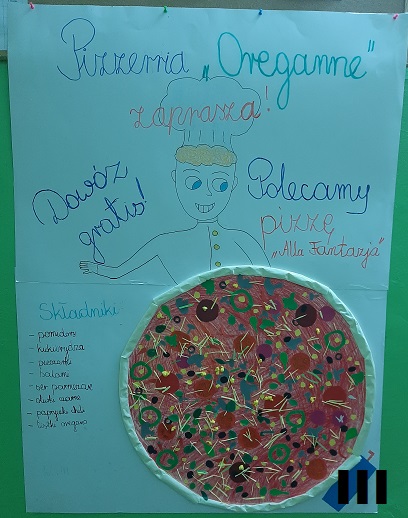 Pizzerria „Oreganne"
zaprasza!
Dowóz
gratis!
Polecamy
pizzę
„Alla Fantazja"
Składniki:
- pomidory
- kukurydza
- pieczarki
- salami
- ser parmezan
- oliwki czarne
- papryczki chili
- listki oregano